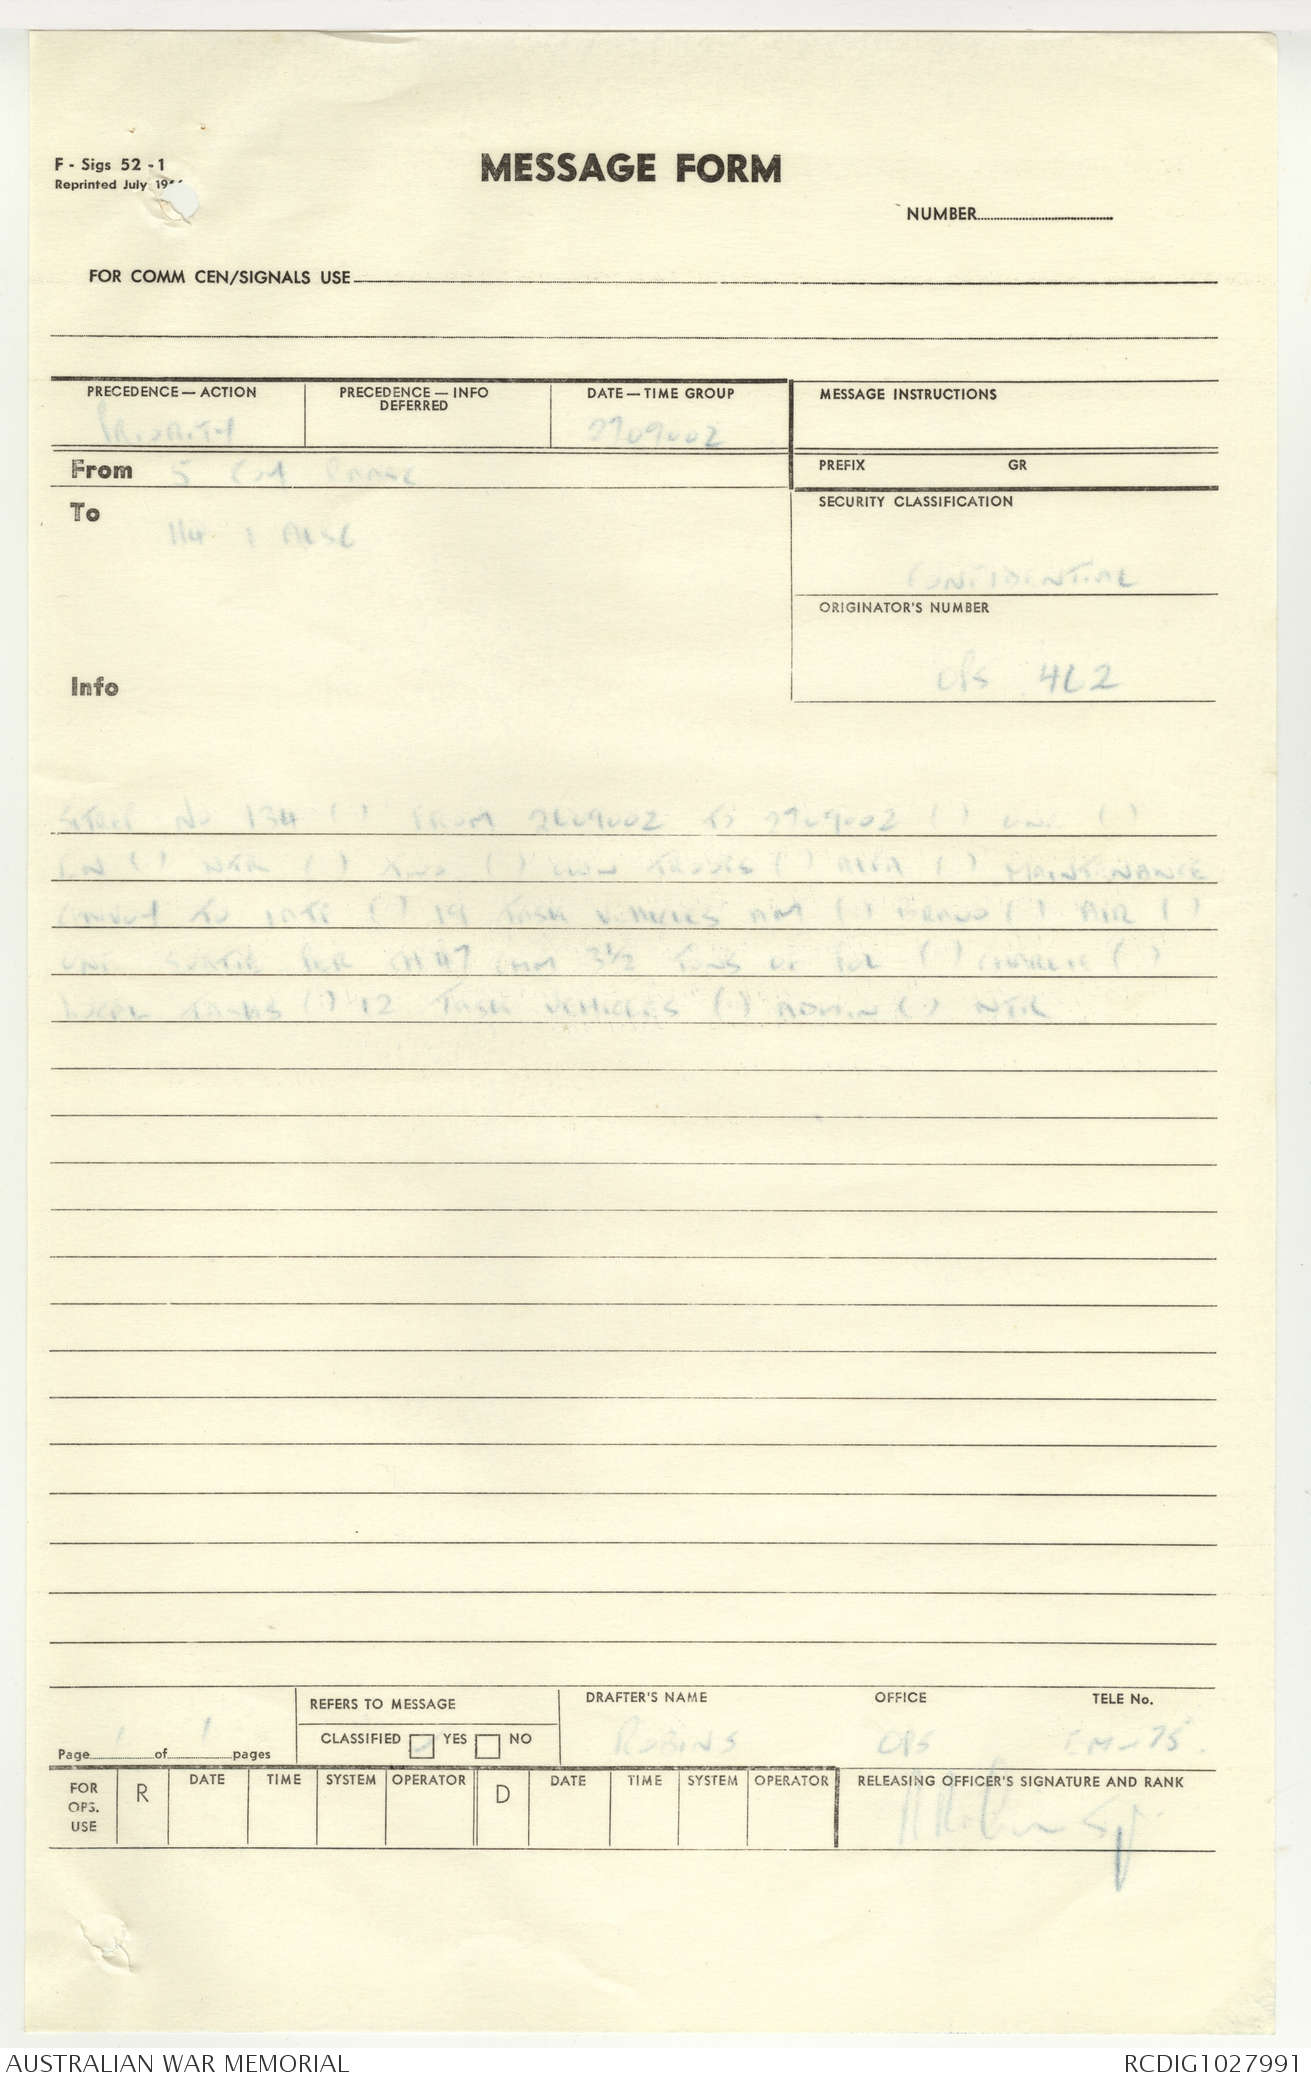 F - Sigs 52 - 1
Reprinted July
MESSAGE FORM
NUMBER
FOR COMM CEN/SIGNALS USE
PRECEDENCE — ACTION
PRIORITY
PRECEDENCE — INFO
DEFERRED
DATE — TIME GROUP
270900Z
MESSAGE INSTRUCTIONS
From 5 Coy RAASC
PREFIX GR
To
HQ 1 ALSG
SECURITY CLASSIFICATION
CONFIDENTIAL
ORIGINATOR'S NUMBER
OPS 462
Info
SITREP NO 134 ( ) FROM 260900Z TO 270900Z ( ) ONE ( )
EN ( ) NTR ( ) TWO ( ) OWN TROOPS ( ) ALFA ( ) MAINTENANCE
CONVOY TO 1ATF ( ) 19 TASK VEHICLES AM ( ) BRAVO ( ) AIR ( )
ONE SORTIE PER CH47 3½ TONS OF POL ( ) CHARLIE ( )
LOCAL TASKS (.) 12 TASK VEHICLES (.) ADMIN (.) NTR
Page 1 of 1 pages
REFERS TO MESSAGE
CLASSIFIED YES NO
DRAFTER'S NAME
ROBINS
OFFICE
OPS
TELE No.
75
FOR OPS. USE
R
DATE TIME SYSTEM OPERATOR
D
DATE TIME SYSTEM OPERATOR
RELEASING OFFICER'S SIGNATURE AND RANK
AUSTRALIAN WAR MEMORIAL
RCDIG1027991